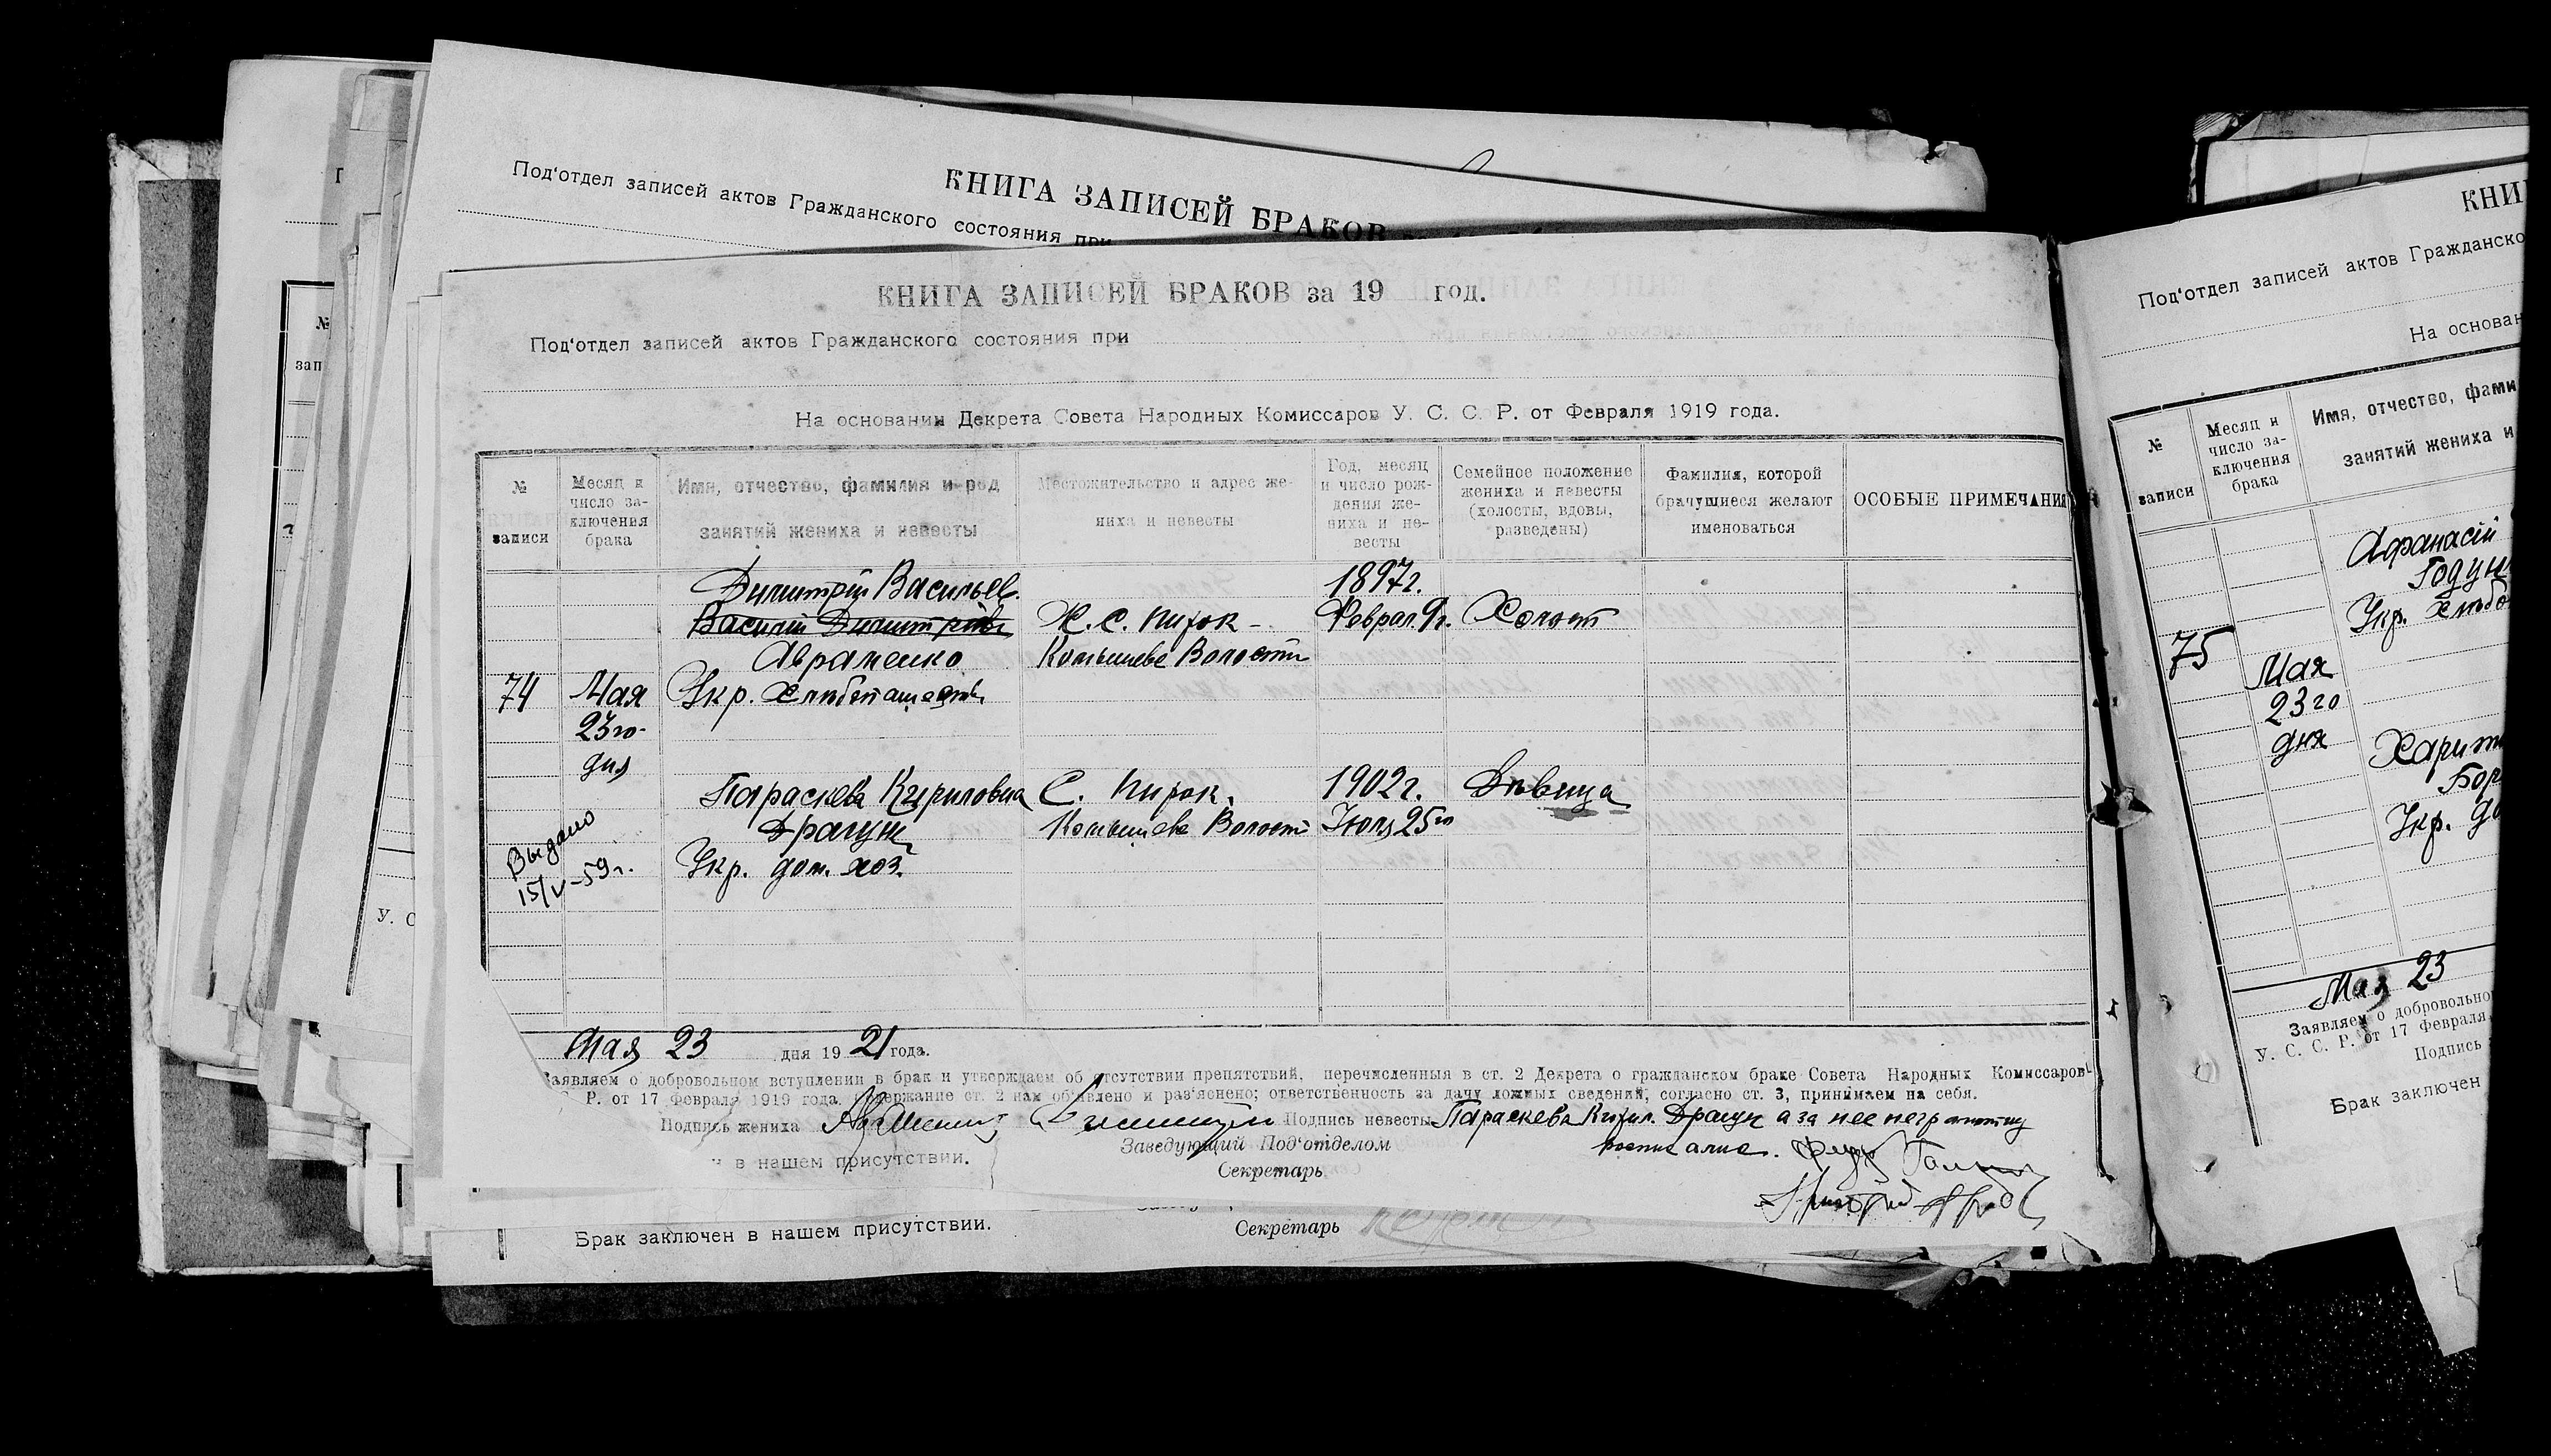 КНИГА ЗАПИСЕЙ БРАКОВ
Под‘отдел записей актов Гражданского состояния при
КНИГА ЗАПИСЕЙ БРАКОВ за 19 год.
Под‘отдел записей актов Гражданского состояния при
На основании Декрета Совета Народных Комиссаров У. С. С. Р. от Февраля 1919 года.
№ записи
Месяц и число заключения брака
Имя, отчество, фамилия и род занятий жениха и невесты
Местожительство и адрес жениха и невесты
Год, месяц и число рождения жениха и невесты
Семейное положение жениха и невесты (холосты, вдовы, разведены)
Фамилия, которой брачущиеся желают именоваться
ОСОБЫЕ ПРИМЕЧАНИЯ
Димитрій Васильев. 1897г.
Василій Димитріев Х. С. Феврал. 9г. Холост
Авраменко Волости
74 Мая Укр.
23го
дня
Параскева Кириловна С. 1902г. Дѣвица
Драгун Волости Июля 25го
Укр. дом. хоз.
Выдано
15/V-59г.
Мая 23 дня 19 21 года.
Заявляем о добровольном вступлении в брак и утверждаем об отсутствии препятствий, перечисленныя в ст. 2 Декрета о гражданском браке Совета Народных Комиссаров
С. Р. от 17 Февраля 1919 года. Содержание ст. 2 нам об‘явлено и раз‘яснено; ответственность за дачу ложных сведений, согласно ст. 3, принимаем на себя.
Подпись жениха Подпись невесты Параскева Кирил. Драгун а за нее неграмотну
Заведующий Под‘отделом
в нашем присутствии.
Секретарь
Брак заключен в нашем присутствии. Секретарь
КНИ
Под‘отдел записей актов Гражданско
На основан
№ записи
Месяц и число заключения брака
Имя, отчество, фами
занятий жениха и
Афанасій
Годун
Укр. хлебо
75 Мая
23го
дня
Харит
Бор
Укр. до
Мая 23
Заявляем о добровольно
У. С. С. Р. от 17 февраля
Подпись
Брак заключен
№
зап
У. С